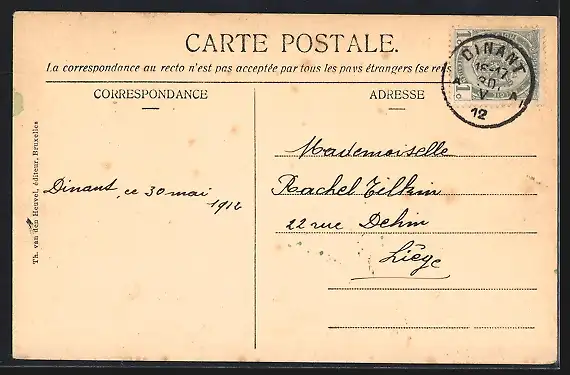 CARTE POSTALE.
La correspondance au recto n'est pas acceptée par tous les pays étrangers (se
CORRESPONDANCE
ADRESSE
DINANT
30
V
12
Mademoiselle
Rachel Tilkin
22 rue Dehin
Liége
Dinant, ce 30 mai
1912
Th. van den Heuvel, éditeur, Bruxelles